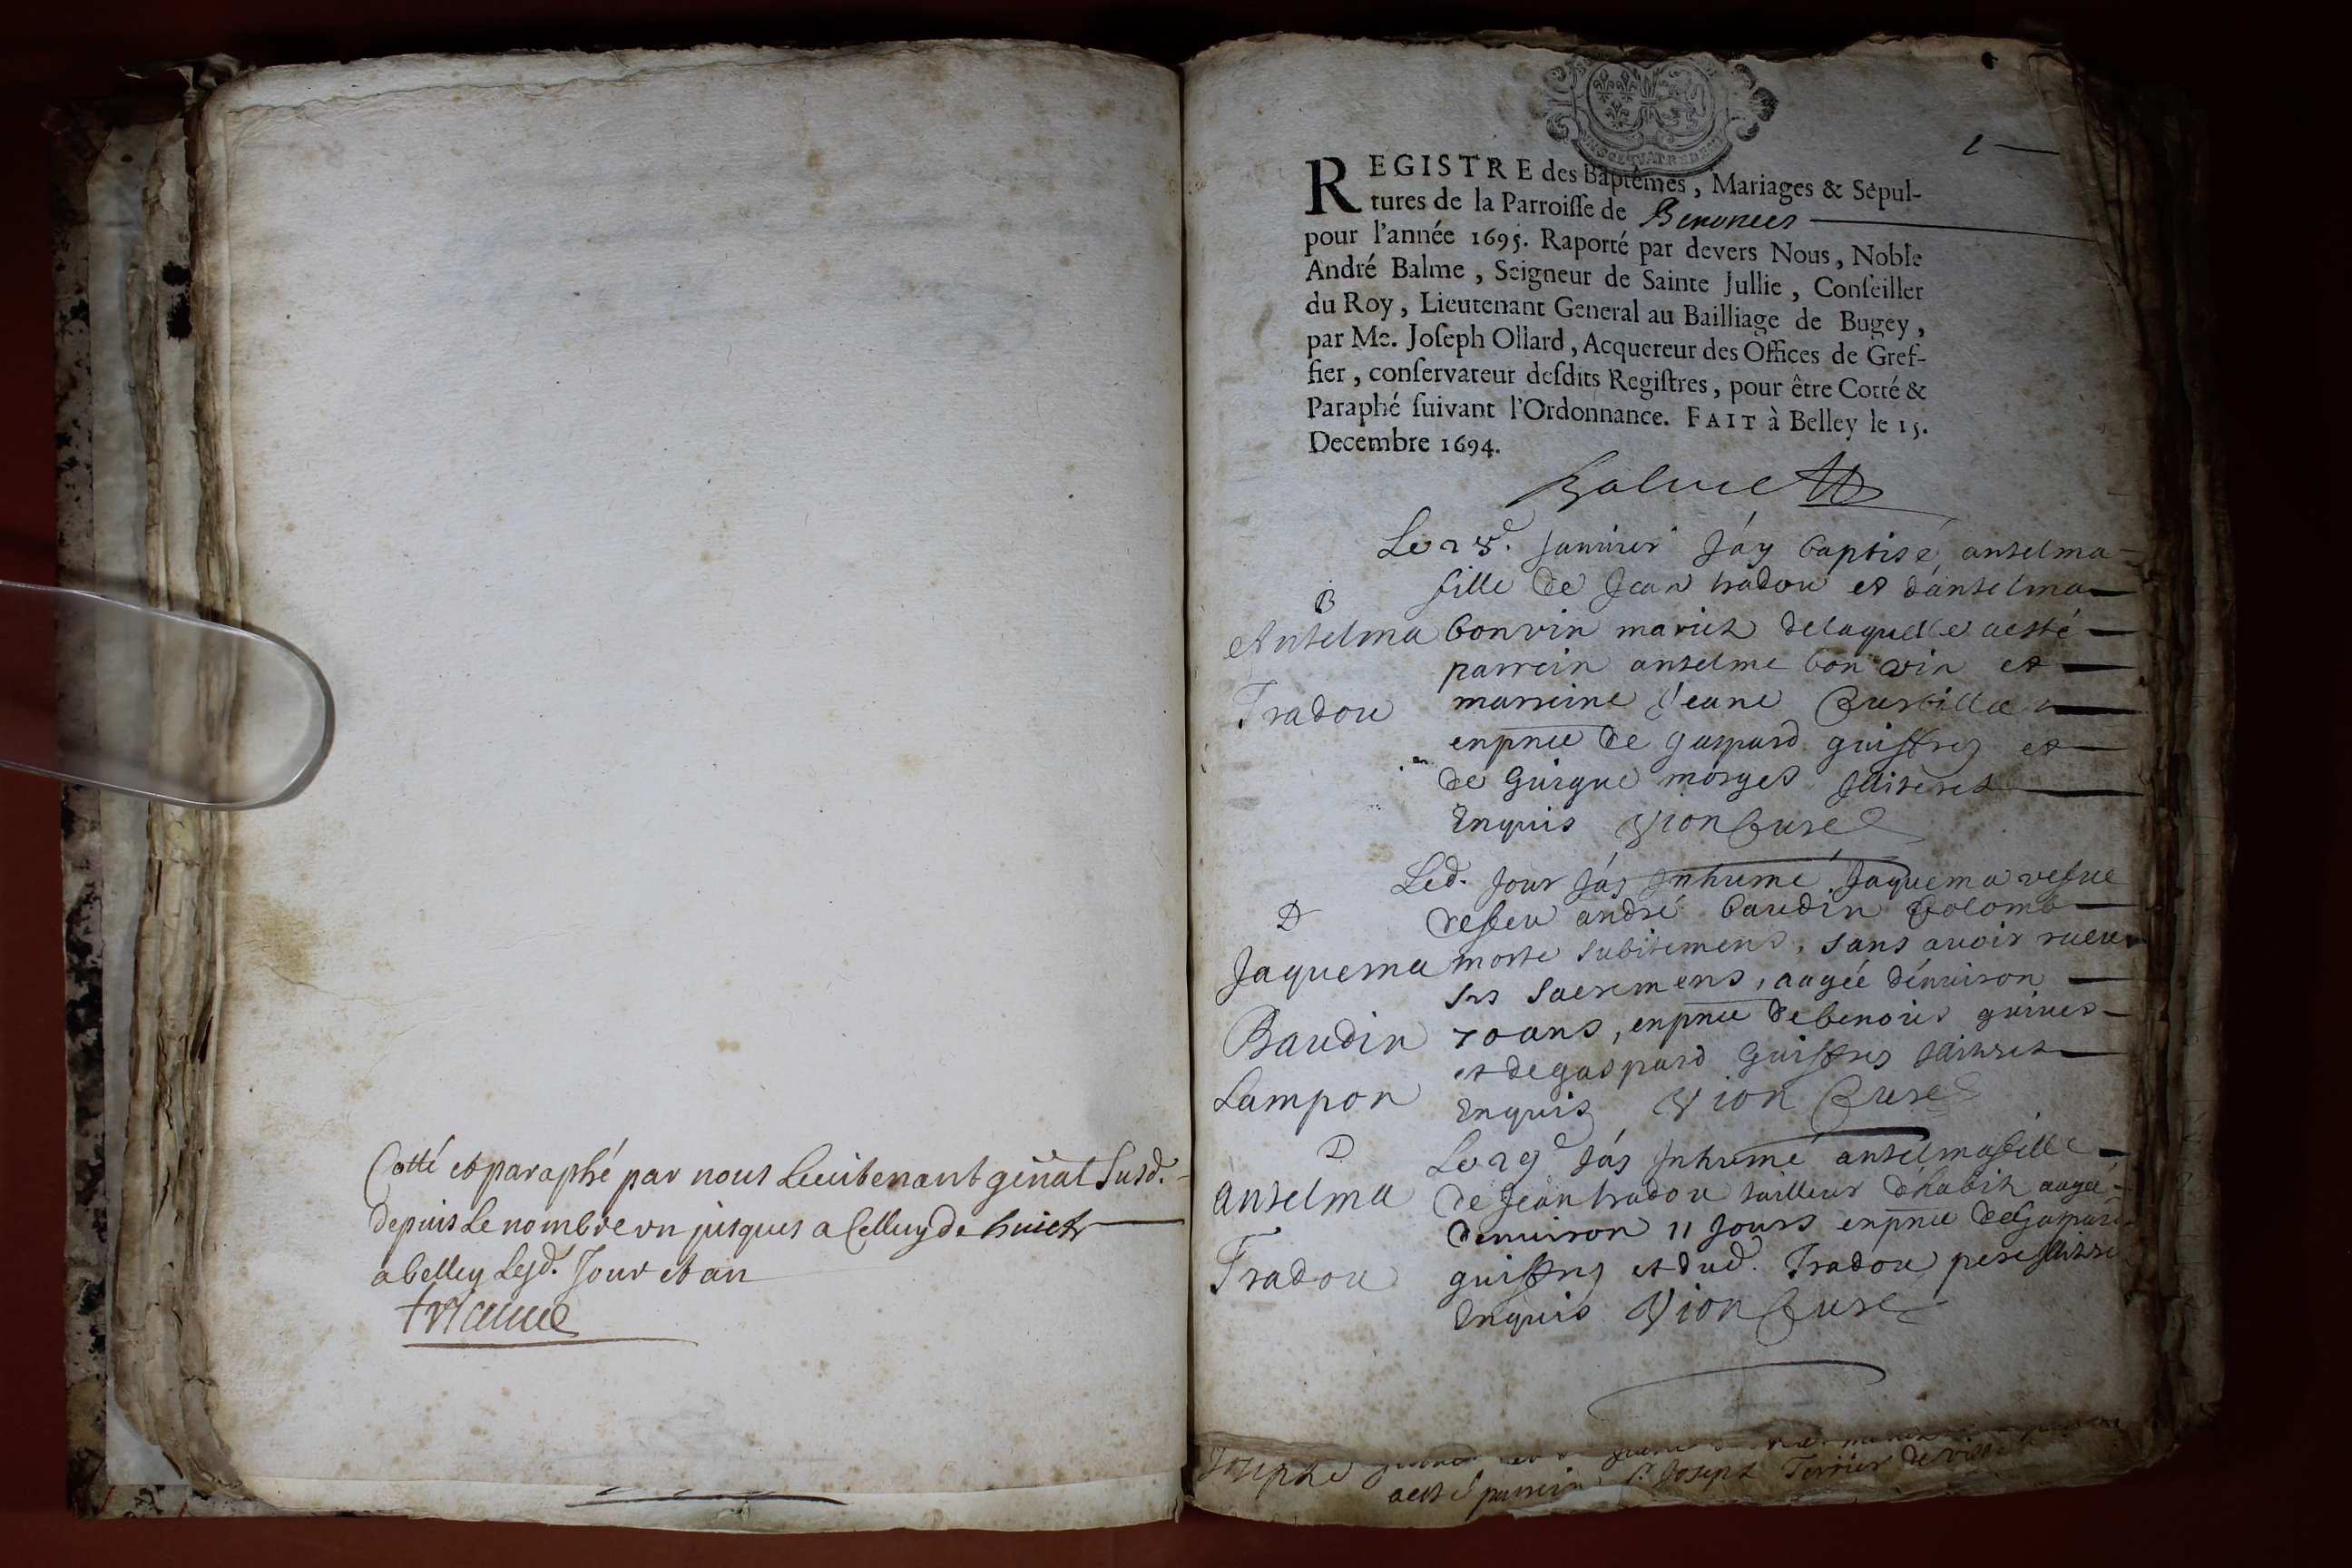 Cotté et paraphé par nous Lieutenant gñal Susd.
depuis Le nombre un jusques a Celluy de huict
a belley Lesd. Jour et an
1
REGISTRE des Baptêmes, Mariages & Sepul-
tures de la Parroiſſe de
pour l'année 1695. Raporté par devers Nous, Noble
André Balme, Seigneur de Sainte Jullie, Conſeiller
du Roy, Lieutenant General au Bailliage de Bugey,
par Me. Joſeph Ollard, Acquereur des Offices de Gref-
fier, conſervateur deſdits Regiſtres, pour être Cotté &
Paraphé ſuivant l'Ordonnance. FAIT à Belley le 15.
Decembre 1694.
Balme
Le janvier Jáy baptisé anselma
fille de Jean tradou et dánselma
B
Anselma bonvin mariez delaquelle aesté
parrein anselme bon vin et
Tradou marreine Jeane
enpnce de gaspard guiffrey et
de Guigue morges
Enquis Vion Curé
Led. Jour Jáy Inhumé Jaquema vefue
D
defeu andré baudin
Jaquema morte subitement, sans auoir receu
ses sacremens, aagée dénuiron
Baudin 70 ans, enpnce de benoist
et de gaspard Guiffrey
Lampon Enquis Vion Curé
D
Le 29e Jáy Inhumé anselma fille
anselma de Jean tradou tailleur dhabit aagé
denuiron 11 Jours enpnce de Gaspard
Tradou guiffrey et dud. Tradou pere
Enquis Vion Curé
Josephe
aesté parrein Sr Joseph Terrier de